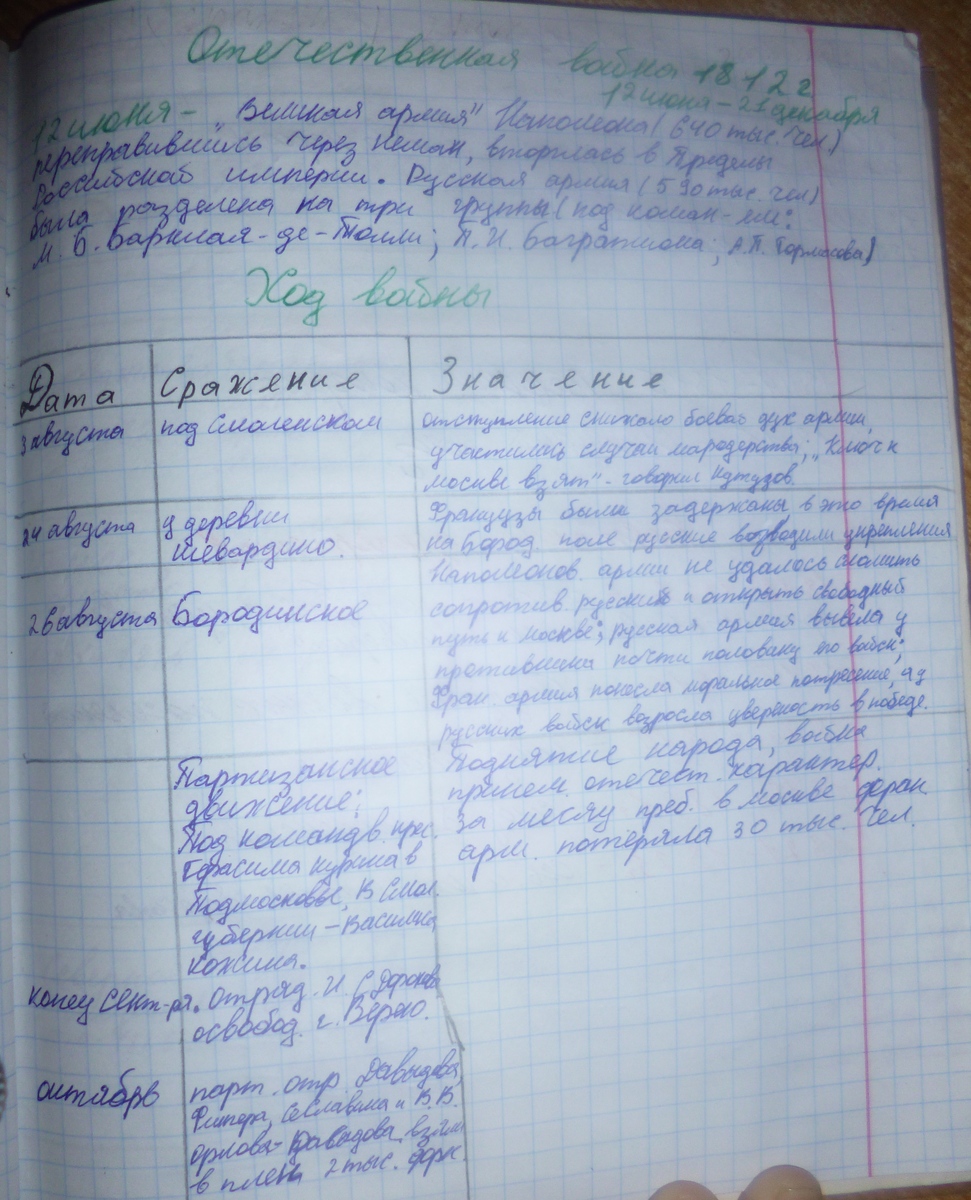 Отечественная война 1812 г
12 июня – 21 декабря
12 июня – „Великая армия" Наполеона (640 тыс. чел.)
переправившись через Неман, вторглась в пределы
Российской империи. Русская армия (590 тыс. чел)
была разделена на три группы (под коман-ем:
М. Б. Барклая-де-Толли; П. И. Багратиона; А.П. Тормасова)
Ход войны
Дата Сражение Значение
3 августа под Смоленском отступление снижало боевой дух армии,
участились случаи мародерства; „Ключ к
Москве взят" - говорил Кутузов.
24 августа у деревни Французы были задержаны в это время
Шевардино. на Бород. поле русские возводили укрепления
Наполеонов. армии не удалось сломить
26 августа Бородинское сопротив. русских и открыть свободный
путь к Москве; русская армия вывела у
противника почти половину его войск;
Фран. армия понесла моральное потрясение, а у
русских войск возросла увереность в победе.
Партизанское Поднятие народа, война
движение: прином. отечест. характер.
Под командв. крес. За месяц преб. в Москве фран.
Герасима Курина в арм. потеряла 30 тыс. чел.
Подмосковье, В Смол.
губернии – Василиса
Кожина.
конец сент-ря. отряд. И. С Дорохова
освобод. г. Верею.
октябрь парт. отр. Давыдова,
Фигнера, Сеславина и В.В.
Орлова-Давыдова взяли
в плен 2 тыс. фран.